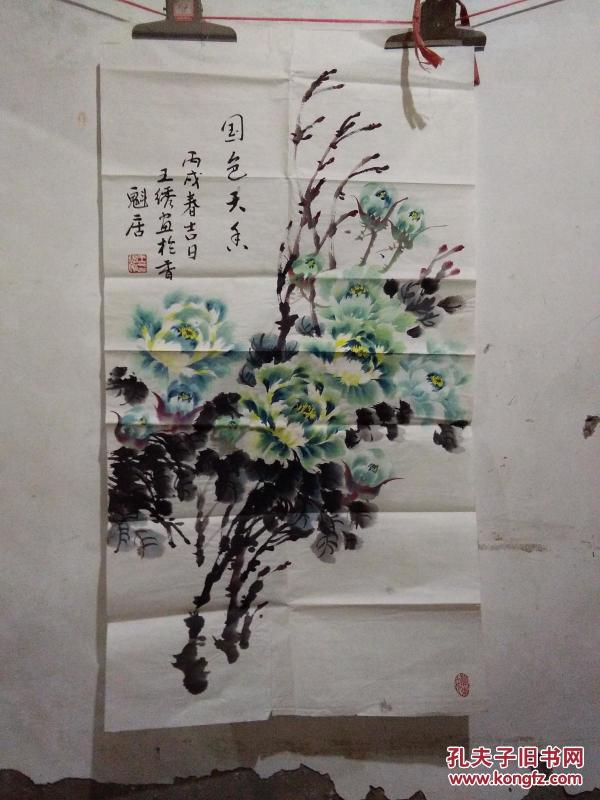 国色天香
丙戌春吉日
王绣画於香
魁居
孔夫子旧书网
www.kongfz.com